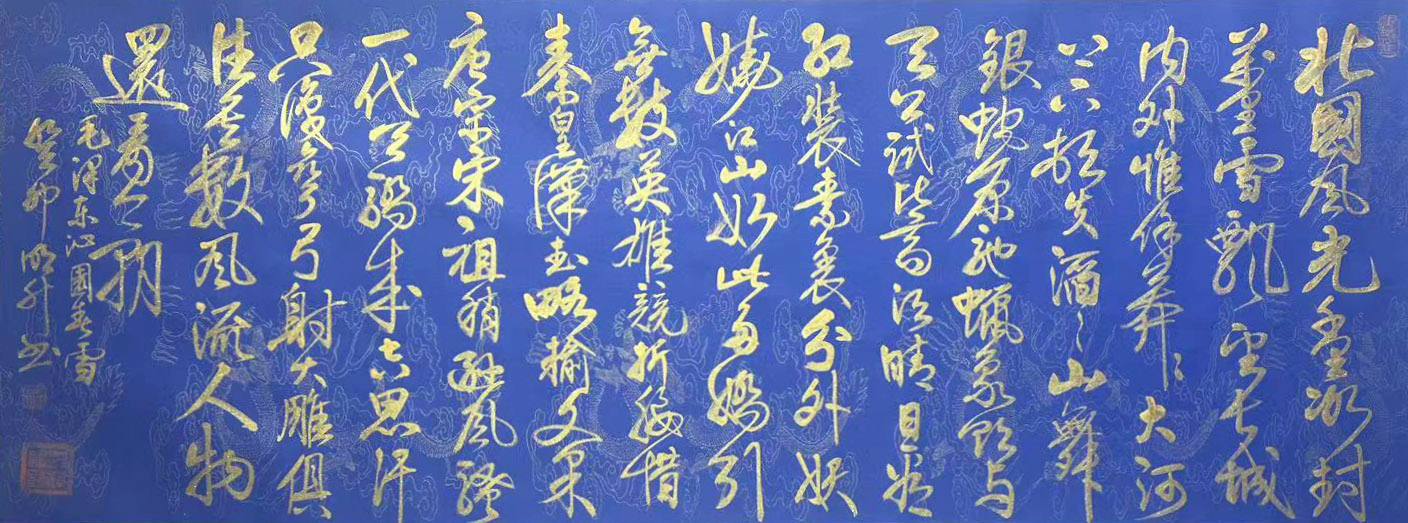 北國风光千里冰封
萬里雪飄望长城
内外惟余莽々大河
上下顿失滔々山舞
銀蛇原驰蠟象欲与
天公試比高须晴日看
红装素裹分外妖
娆江山如此多嬌引
無數英雄競折腰惜
秦皇漢武略输文采
唐宗宋祖稍逊风骚
一代天骄成吉思汗
只識弯弓射大雕俱
往矣數风流人物
還看今朝
毛泽东沁園春雪
癸卯升书